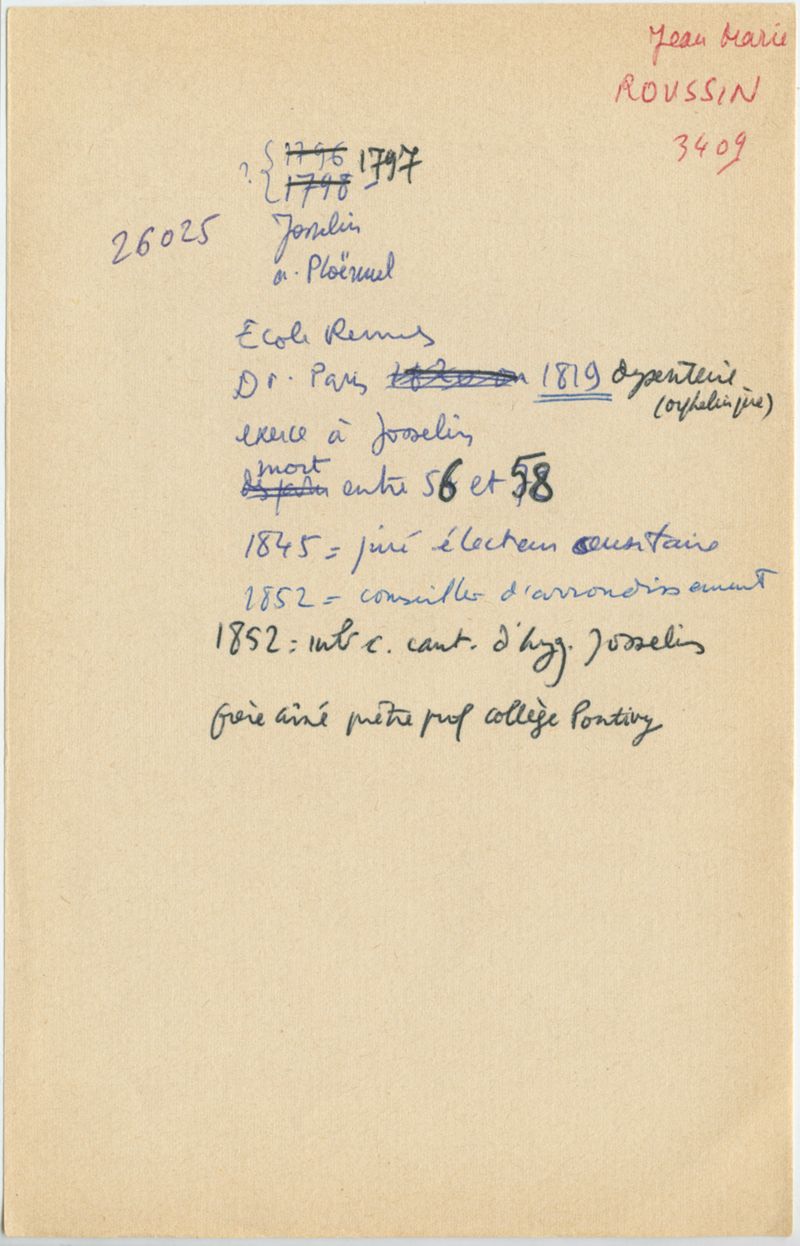 Jean Marie
ROUSSIN
3409
? { 1796 1797
1798
26025 Josselin
a. Ploërmel
Ecole Rennes
Dr. Paris 1819 dysenterie
(orphelin père)
exerce à Josselin
mort
entre 56 et 58
1845 = juré électeur censitaire
1852 = conseiller d'arrondissement
1852 = mbr c. cant. d'hyg. Josselin
frère aîné prêtre prof collège Pontivy